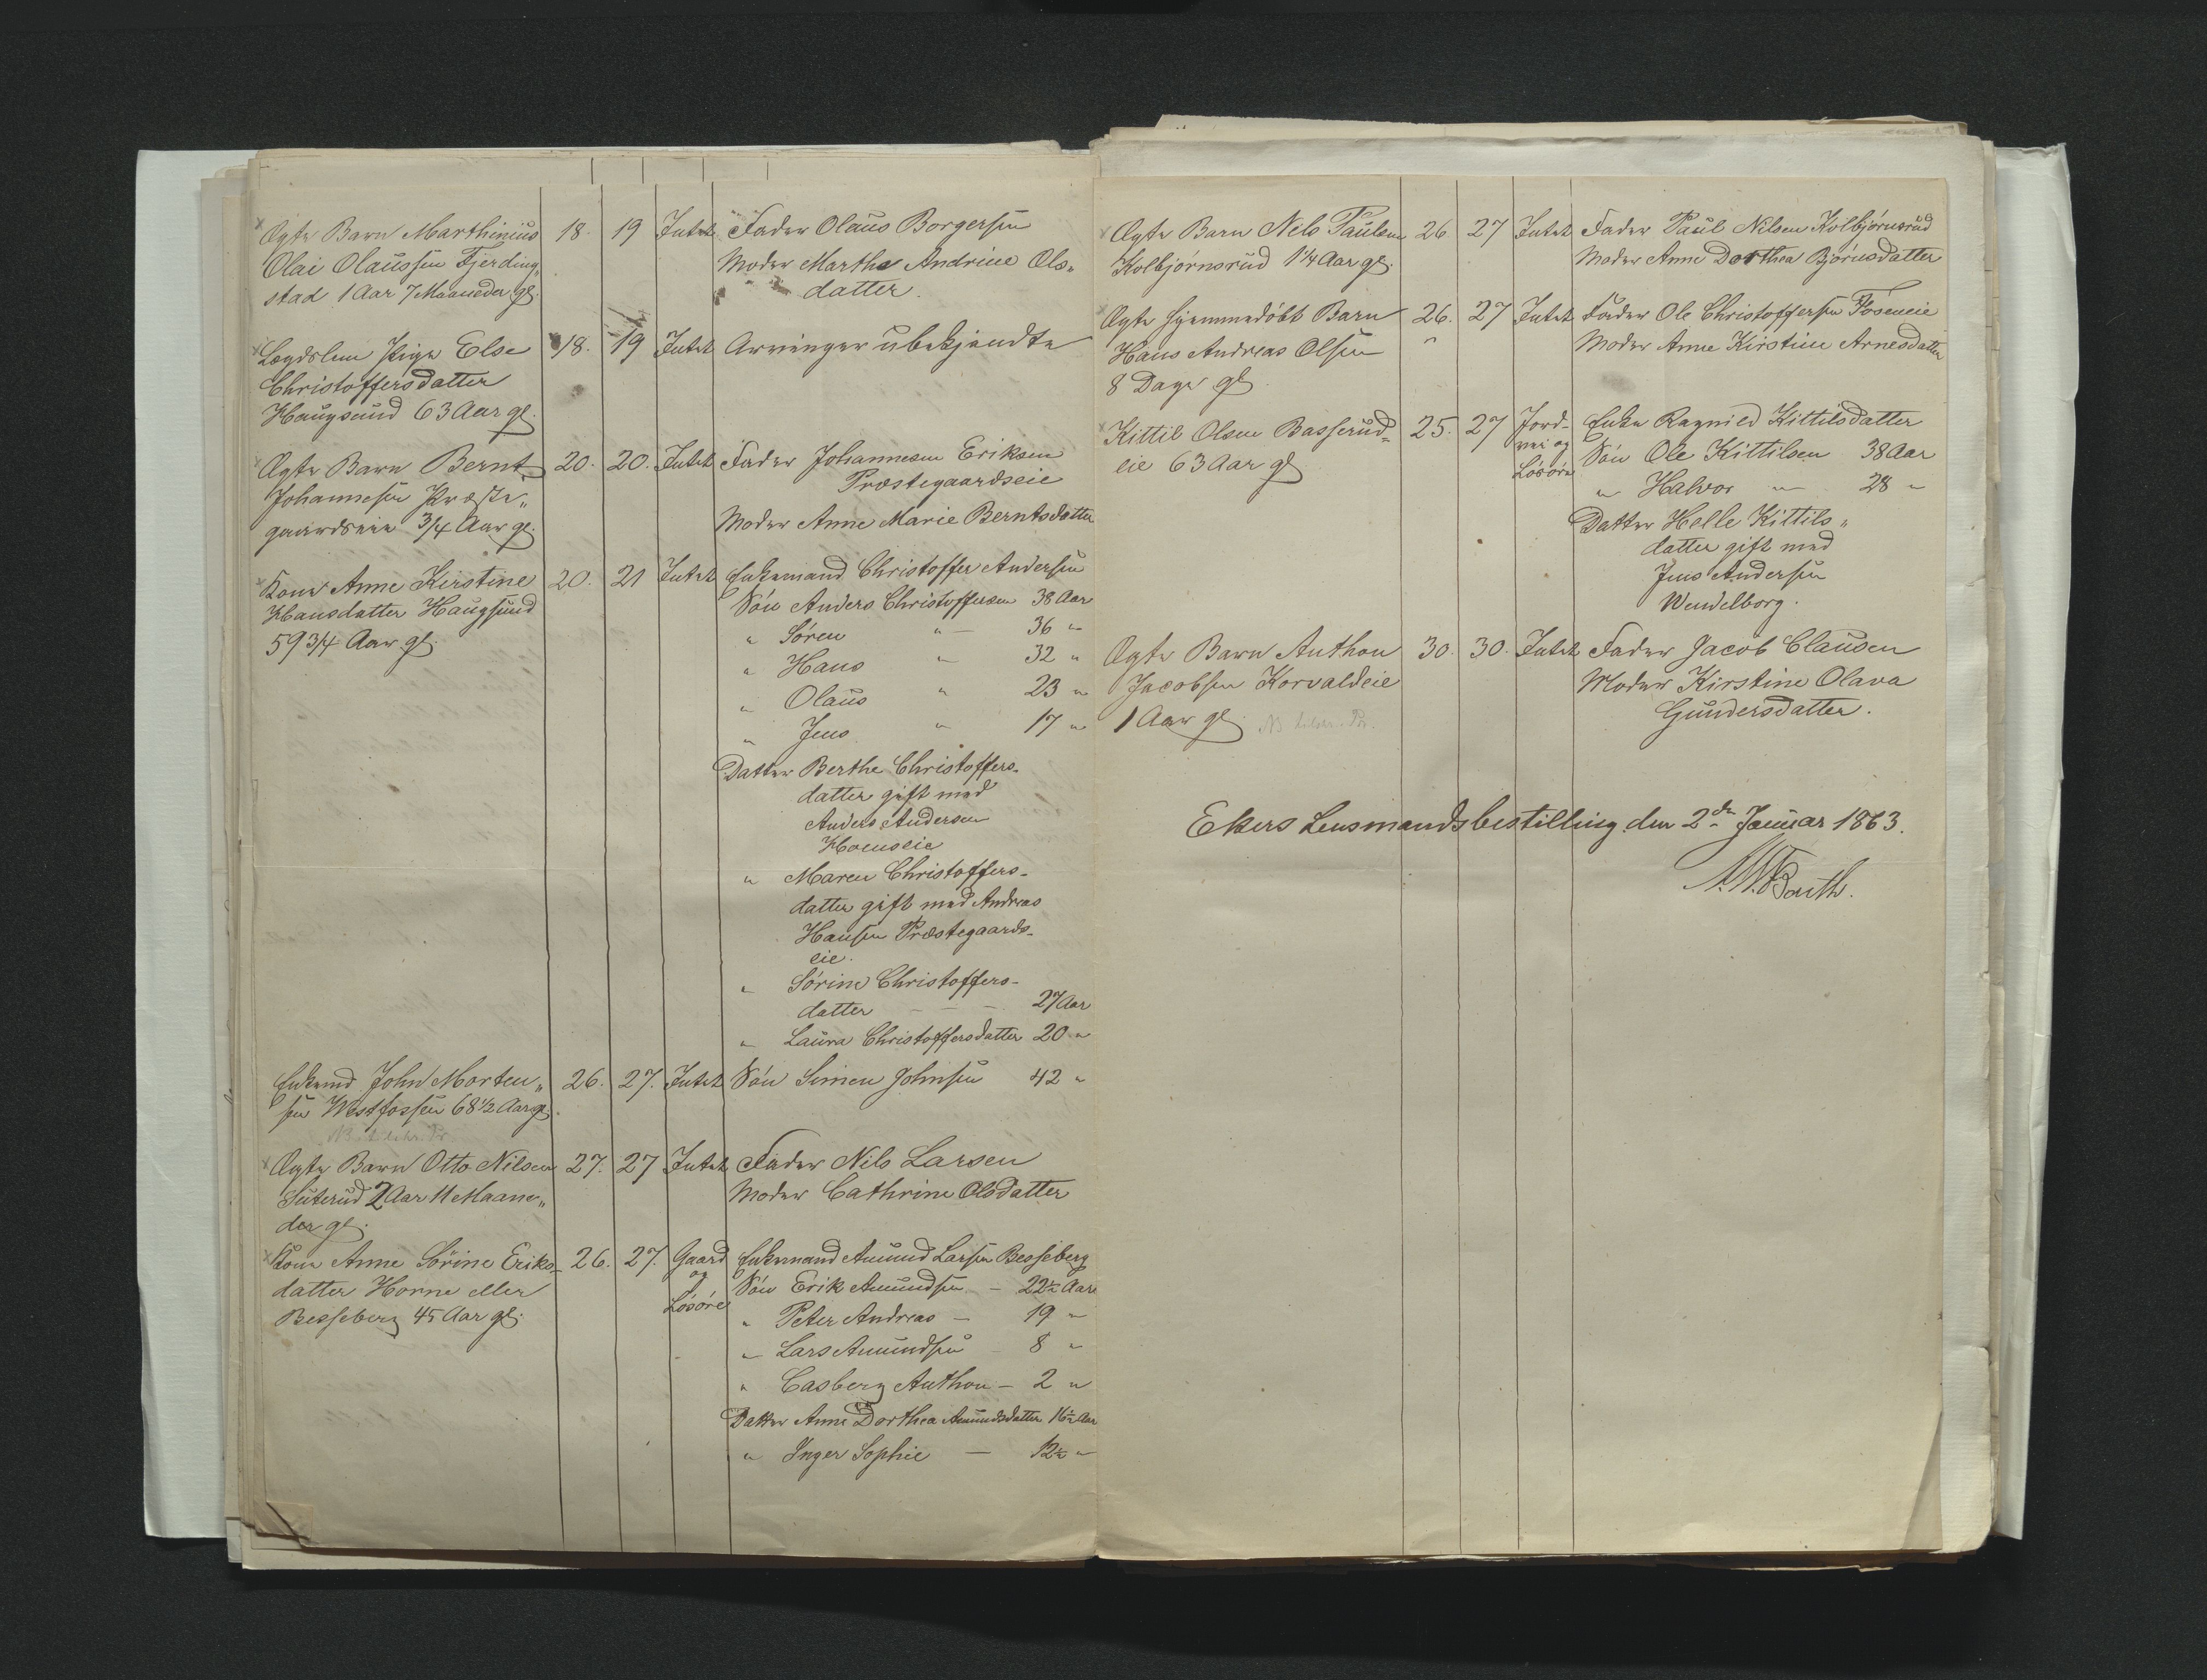 Ægte Barn Marthinius 18. 19 Intet Fader Olaus Borgersen
Olai Olaussen Fjerding„ Moder Marthe Andrine Ols„
stad 1 Aar 7 Maaneder gl. datter.
Lægdslem Pige Else 18. 19 Intet Arvinger ubekjendte
Christoffersdatter
Haugsund 63 Aar gl.
Ægte Barn Bernt 20. 20. Intet Fader Johannesen Eriksen
Johannesen Præste„ Præstegaardseie
gaardseie 3/4 Aar gl. Moder Anne Marie Berntsdatter
Kone Anne Kirstine 20. 21 Intet Enkemand Christoffer Andersen
Hansdatter Haugsund Søn Anders Christoffersen 38 Aar
59 3/4 Aar gl. " Søren " 36 "
" Hans " 32 "
" Olaus " 23 "
" Jens " 17 "
Datter Berthe Christoffers-
datter gift med
Anders Andersen
Hoenseie
" Maren Christoffers-
datter gift med Andreas
Hansen Præstegaards-
eie.
" Sørine Christoffers-
datter — — 27 Aar
" Laura Christoffersdatter 20 "
Enkemd John Morten„ 26. 27. Intet Søn Simen Johnsen 42 "
sen Westfossen 68 1/2 Aar gl.
Ægte Barn Otto Nilsen 27. 27 Intet Fader Nils Larsen
Suterud 2 Aar 11 Maane„ Moder Cathrine Olsdatter
der gl.
Kone Anne Sørine Eriks- 26. 27. Gaard og Løsøre Enkemand Amund Larsen Besseberg
datter Horne eller Søn Erik Amundsen — 22 1/2 Aar
Besseberg 45 Aar gl. " Peter Andreas — 19 "
" Lars Amundsen — 8 "
" Casberg Anthon — 2 "
Datter Anne Dorthea Amundsdatter 16 1/2 Aar
" Inger Sophie — 12 1/2 "
Ægte Barn Nels Paulsen 26 27 Intet Fader Paul Nilsen Kolbjørnsrud
Kolbjørnsrud 1 1/4 Aar gl. Moder Anne Dorthea Bjørnsdatter
Ægte hjemmedøbt Barn 26. 27 Intet Fader Ole Christoffersen Foseneie
Hans Andreas Olsen Moder Anne Kirstine Arnesdatter
8 Dage gl.
Kittil Olsen Basserud- 25. 27 Jord- Enke Ragnild Kittilsdatter
eie 63 Aar gl. vei og Søn Ole Kittilsen 38 Aar
Løsøre " Halvor " 28 "
Datter Helle Kittils„
datter gift med
Jens Andersen
Wendelborg.
Ægte Barn Anthon 30. 30. Intet Fader Jacob Clausen
Jacobsen Korvaldeie Moder Kirstine Olava
1 Aar gl. Gundersdatter.
Ekers Lensmandsbestilling den 2den Januar 1863.